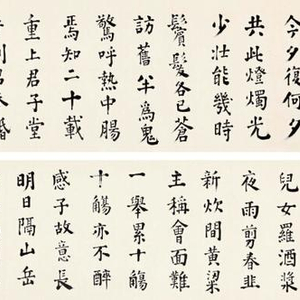 今夕復何夕
共此燈燭光
少壯能幾時
鬢髮各已蒼
訪舊半爲鬼
驚呼熱中腸
焉知二十載
重上君子堂
兒女羅酒漿
夜雨剪春韭
新炊間黃粱
主稱會面難
一舉累十觴
十觴亦不醉
感子故意長
明日隔山岳